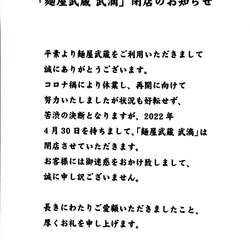 「麺屋武蔵 武漓」閉店のお知らせ
平素より麺屋武蔵をご利用いただきまして
誠にありがとうございます。
コロナ禍により休業し、再開に向けて
努力いたしましたが状況も好転せず、
苦渋の決断となりますが、2022年
4月30日を持ちまして、「麺屋武蔵 武漓」は
閉店させていただきます。
お客様には御迷惑をおかけ致しまして、
誠に申し訳ございません。
長きにわたりご愛顧いただきましたこと、
厚くお礼を申し上げます。